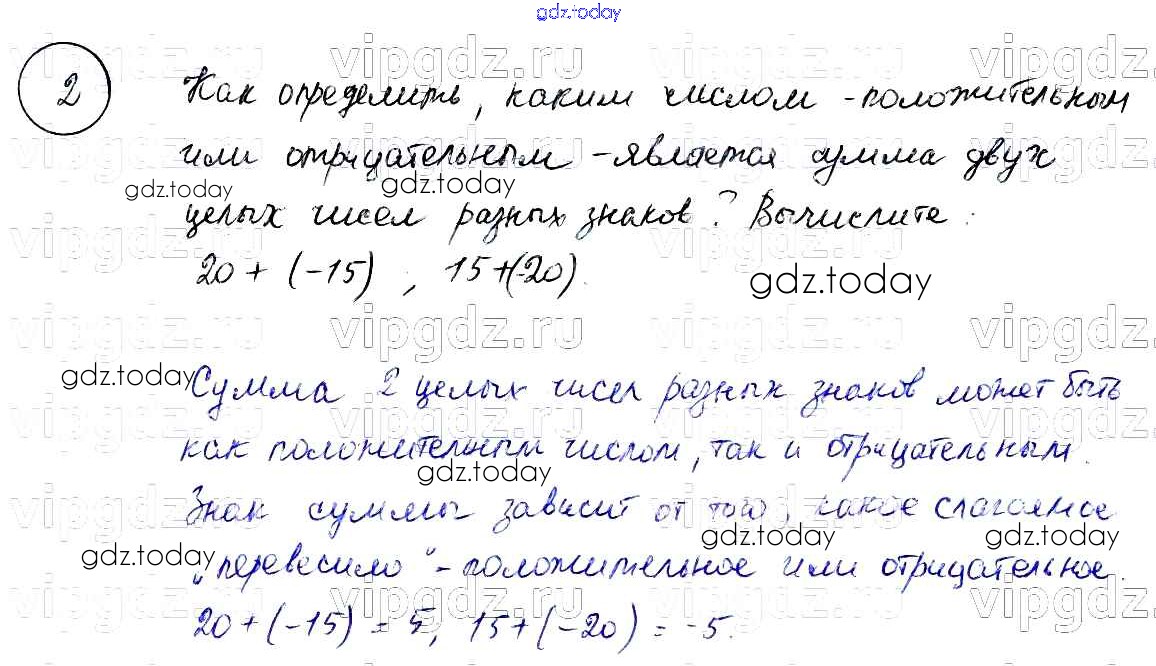 gdz.today
2
Как определить, каким числом - положительным
или отрицательным - является сумма двух
целых чисел разных знаков? Вычислите:
20 + (-15), 15+(-20).
Сумма 2 целых чисел разных знаков может быть
как положительным числом, так и отрицательным.
Знак суммы зависит от того, какое слагаемое
"перевесило" - положительное или отрицательное.
20 + (-15) = 5, 15 + (-20) = -5.
vipgdz.ru
gdz.today